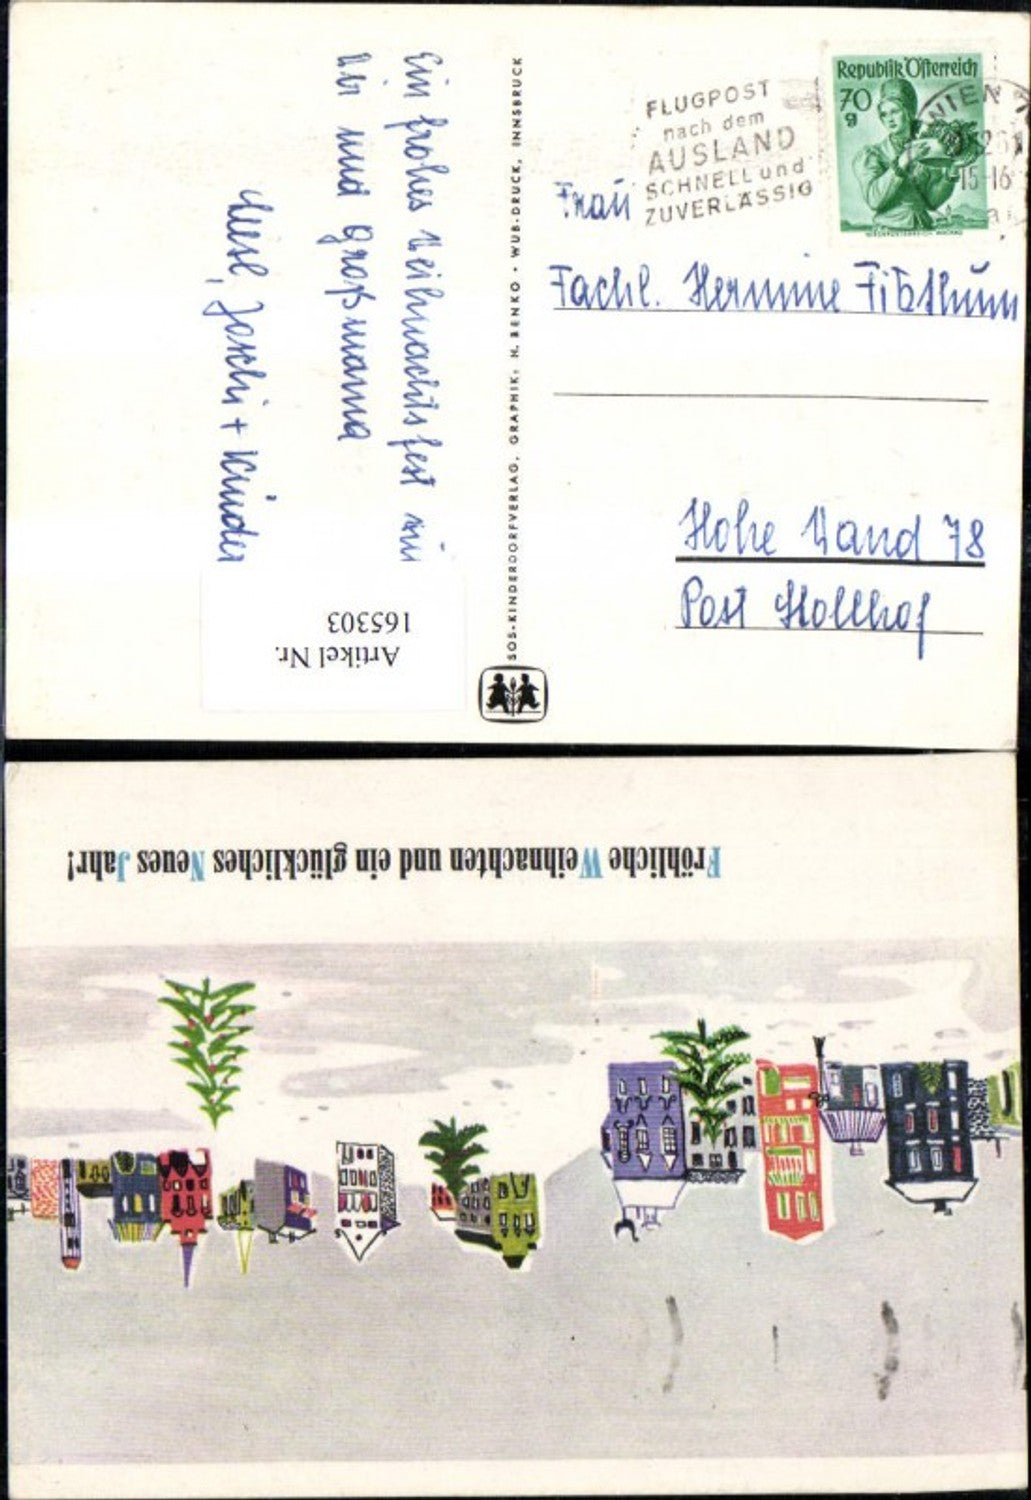 Ein frohes Weihnachtsfest wün
Dir und Großmama
Liesl, Joschi + Kinder
Artikel Nr.
165303
SOS-KINDERDORFVERLAG, GRAPHIK: H. BENKO • WUB-DRUCK, INNSBRUCK
FLUGPOST
nach dem
AUSLAND
SCHNELL und
ZUVERLÄSSIG
Republik Österreich
70
g
WIEN
15-16
Frau
Fachl. Hermine
Hohe Wand 78
Post Stollhof
Fröhliche Weihnachten und ein glückliches Neues Jahr!